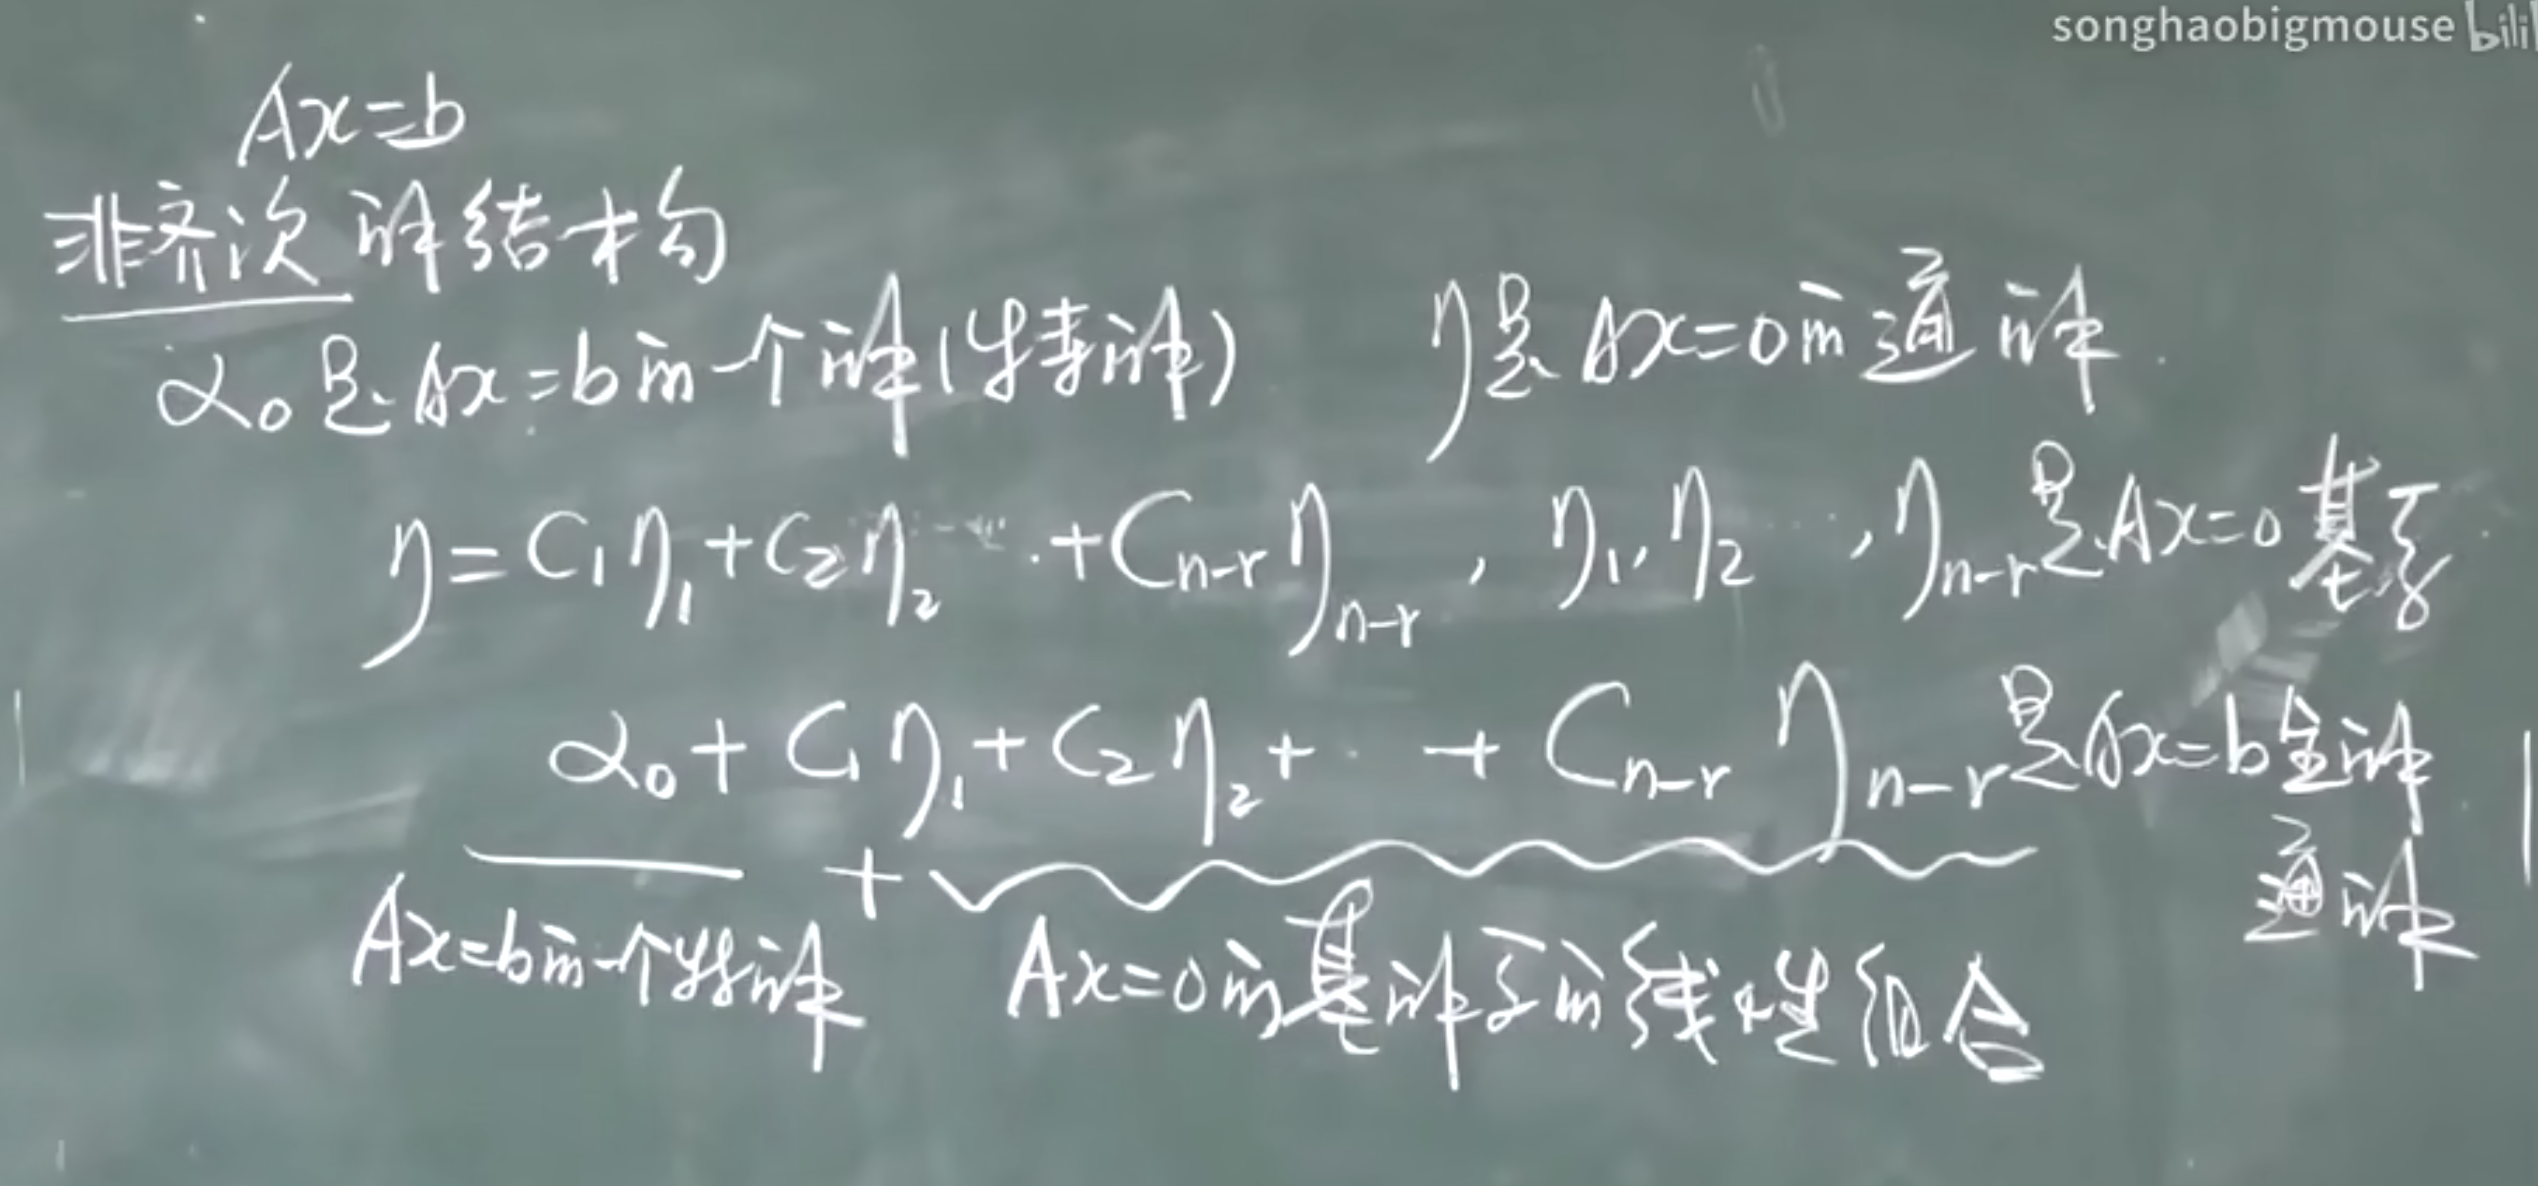 songhaobigmouse bili
Ax=b
非齐次 解结构
α₀是Ax=b的一个解(特解) η是Ax=0的通解.
η=C₁η₁+C₂η₂ ⋯ +Cₙ₋ᵣηₙ₋ᵣ, η₁,η₂ ⋯,ηₙ₋ᵣ是Ax=0基系
α₀+C₁η₁+C₂η₂+⋯+Cₙ₋ᵣηₙ₋ᵣ是Ax=b全解
通解
+
Ax=b的一个特解 Ax=0的基解系的线性组合